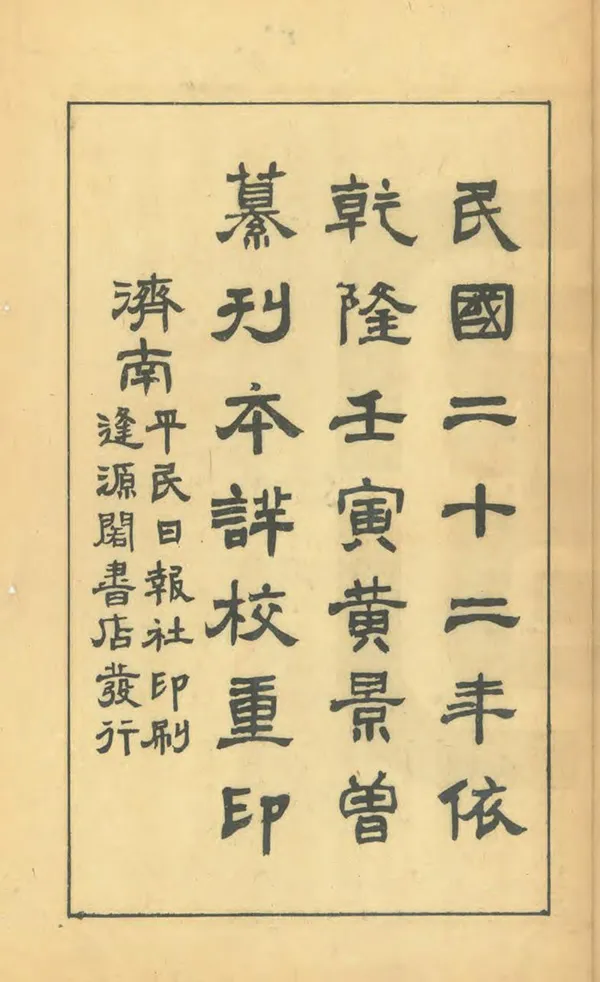 民國二十二年依
乾隆壬寅黄景曾
纂刋本詳校重印
濟南
平民日報社印刷
逢源閣書店發行